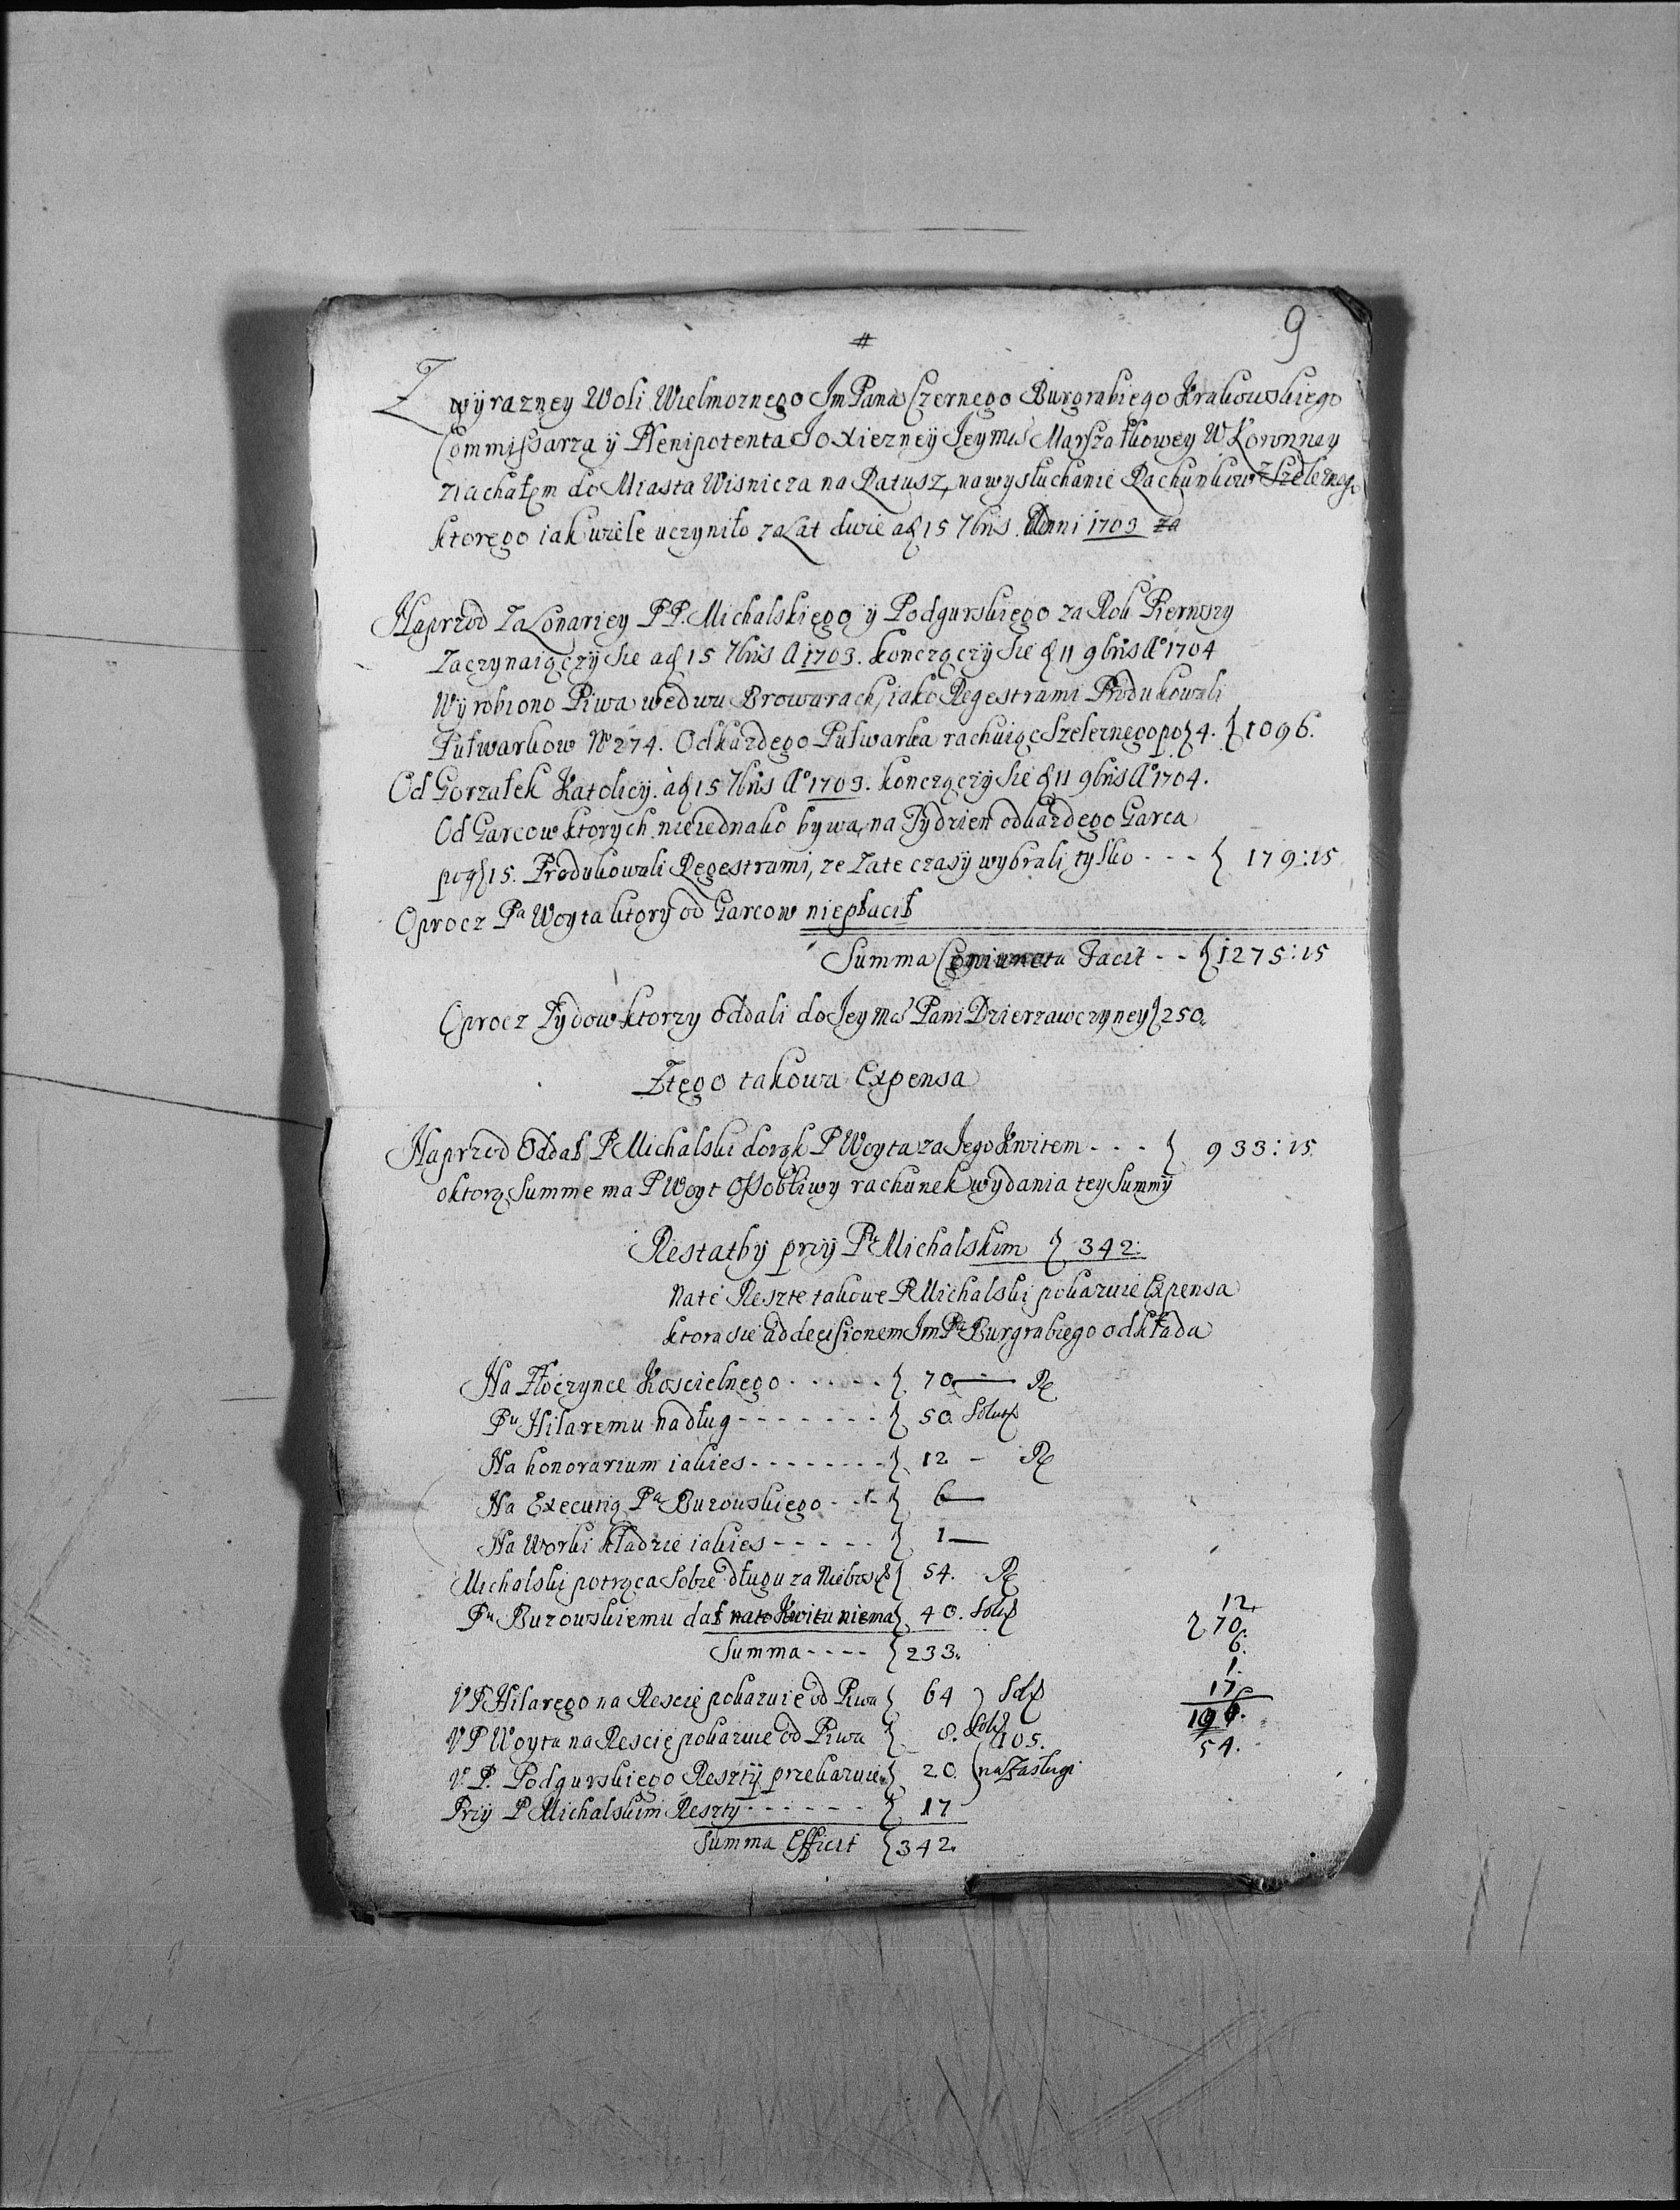 9
#
Z wÿrazney Woli Wielmoznego Jm Pana Czernego Burgrabiego Krakowskiego
Commissarza ÿ Plenipotenta JO Xiezneÿ Jeymci Marszałkowey W Koronney
ziachałem do Miasta Wisnicza na Ratusz, na wysłuchanie Rachunkow z Szelężnego
ktorego iak wiele uczyniło za Lat dwie a d 15 7bris Anni 1703 za
Naprzod Za Lonariey P.P. Michalskiego ÿ Podgurskiego za Rok Pierwszy
Zaczynaiączÿ sie a d 15 7bris A 1703. konczączÿ sie d 11 9bris Aº 1704
Wÿrobiono Piwa we dwu Browarach, iako Regestrami Produkowali
Pułwarkow Nº 274. Od każdego Pułwarka rachuiąc Szeleznego po f 4. f 1096.
Od Gorzałek Katolicÿ. a d 15 7bris Aº 1703. konczączÿ sie d 11 9bris Aº 1704.
Od Garcow ktorych nieiednako bywa, na Tydzien od każdego Garca
po g 15. Produkowali Regestrami, ze Zate czasÿ wybrali tylko - - - f 179:15
Oprocz Pa Woyta ktorÿ od Garcow niepłacił
Summa Coniuncta Facit - - f 1275:15
Oprocz Zydow ktorzy oddali do Jeymci Pani Dzierzawczyney f 250.
Ztego takowa Expensa
Naprzod Oddał P Michalski do rąk P Woyta za Jego Kwitem - - - f 933:15
o ktorą Summe ma P Woyt Ossobliwy rachunek wydania tey Summÿ
Restatbÿ przÿ Pu Michalskim f 342:
Na te Reszte takowe P Michalski pokazuie Expensa
ktora sie ad decisionem Jm Pa Burgrabiego odkłada
Na Złoczynce Koscielnego - - - - - f 70 — R
Pu Hilaremu na dług - - - - - - - f 50. Solut
Na honorarium iakies - - - - - - - f 12 - R
Na Execurią Pa Buzowskiego - - - f 6 —
Na Worki kładzie iakies - - - - - f 1 —
Michalski potrąca Sobie długu za Nieboscz f 54. R
Pu Buzowskiemu dał na to Kwitu niema f 40. Solut
Summa - - - - f 233.
V P Hilarego na Rescie pokazuie od Piwa f 64 Solut
V P Woyta na Rescie pokazuie od Piwa f 8. Solut 105.
V P. Podgurskiego Resztÿ przekazuie f 20. na Zasługi
Przÿ P Michalskim Reszty - - - - - - f 17
Summa Efficit f 342.
12.
f 70.
6.
1.
17.
106.
54.